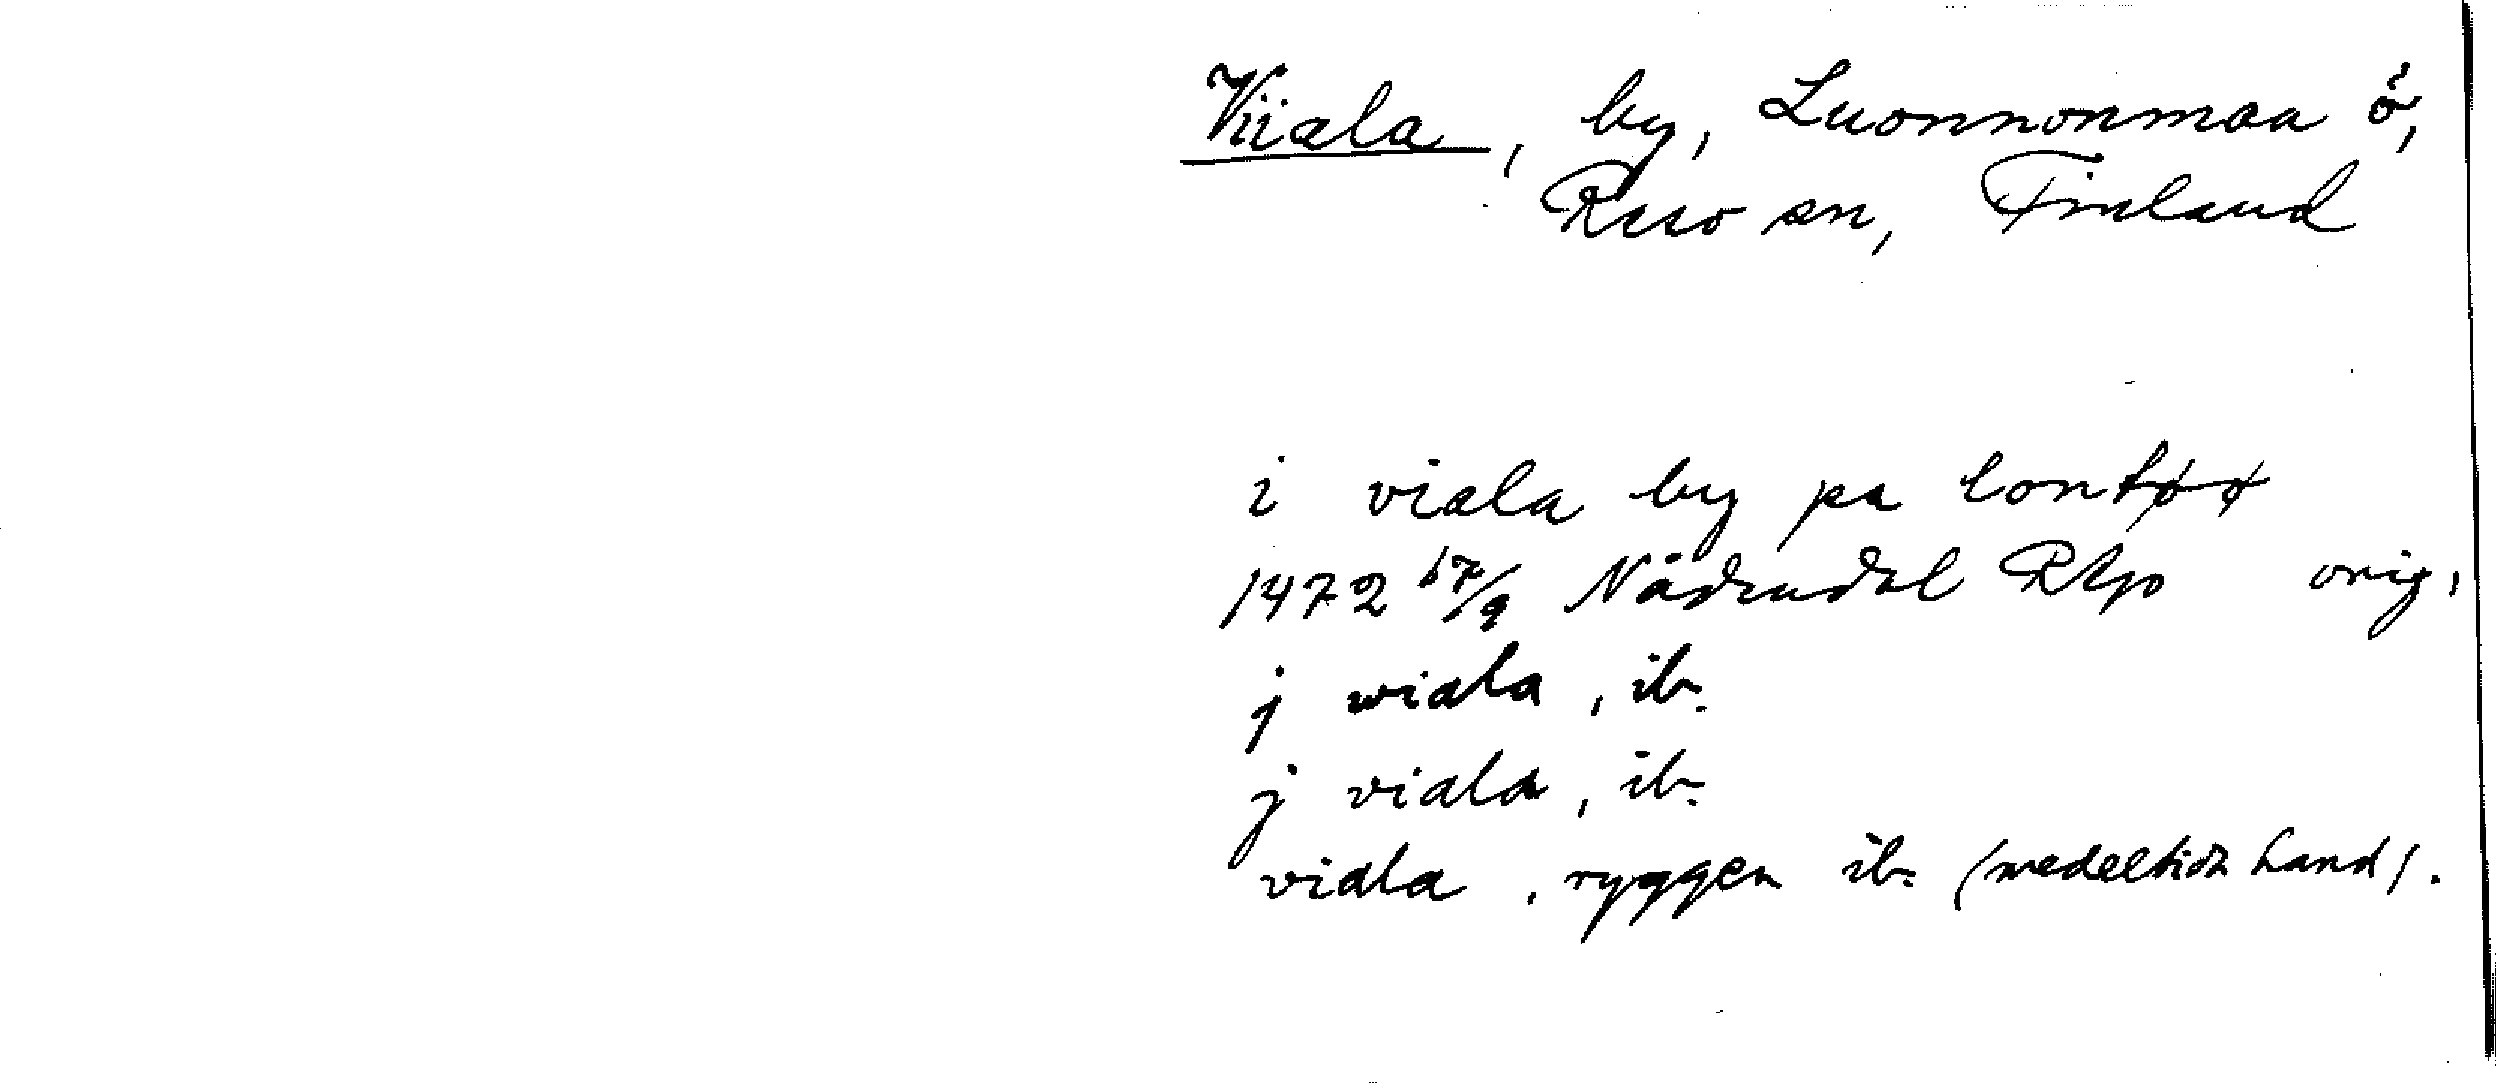 Viiala, by, Luonnonmaa ö,
Reso sn, Finland
i viala by pa lontøø
1472 17/9 Nådendal RAp orig.
j wiala, ib.
j viala, ib.
viala, ryggen ib. (medeltida hand).